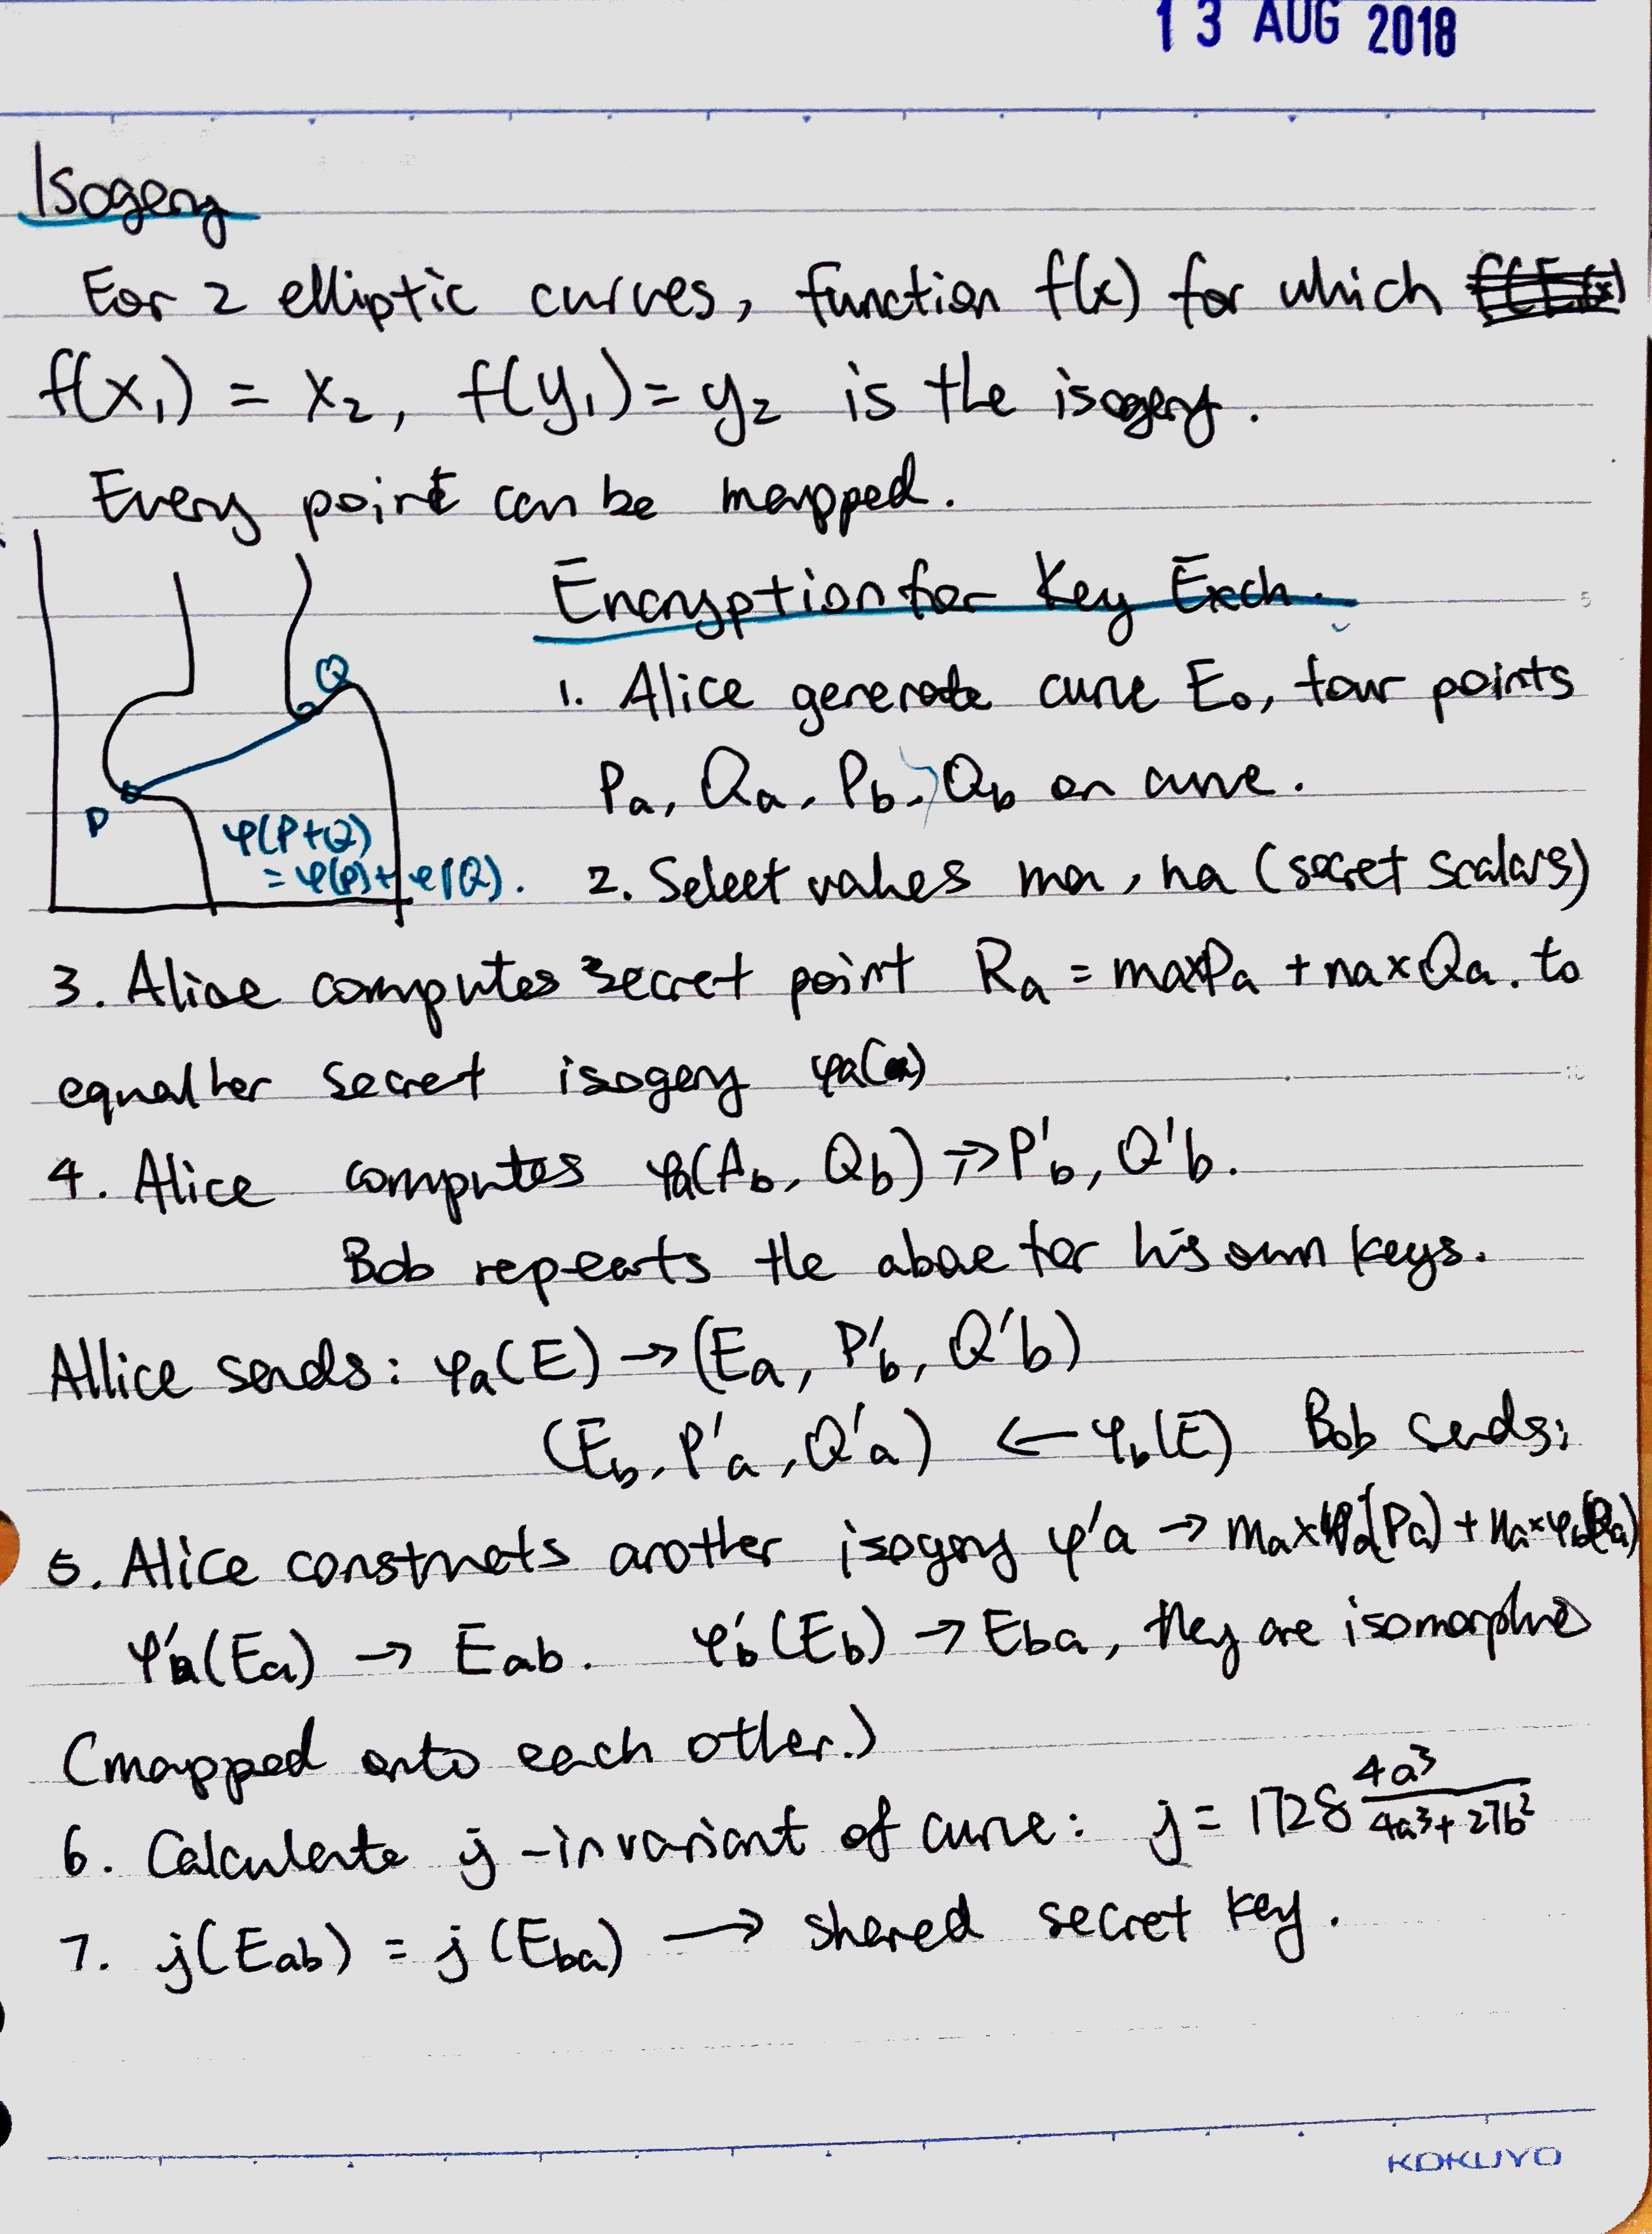 13 AUG 2018
Isogeny
For 2 elliptic curves, function f(x) for which
f(x₁) = x₂, f(y₁) = y₂ is the isogeny.
Every point can be mapped.
Encryption for Key Exch.
Q
P
φ(P+Q)
= φ(P) + φ(Q).
1. Alice generate curve E₀, four points
Pa, Qa, Pb, Qb on curve.
2. Select values ma, na (secret scalars)
3. Alice computes secret point Ra = ma×Pa + na×Qa. to
equal her secret isogeny φa
4. Alice computes φa( b, Qb) → P'b, Q'b.
Bob repeats the above for his own keys.
Allice sends: φa(E) → (Ea, P'b, Q'b)
(Eb, P'a, Q'a) ← φb(E) Bob sends:
5. Alice constructs another isogeny φ'a → ma× (Pa) + na×
(Ea) → Eab. φ'b(Eb) → Eba, they are isomorphic
(mapped onto each other.)
6. Calculate j-invariant of curve: j = 1728 4a³/(4a³+27b²)
7. j(Eab) = j(Eba) → shared secret key.
KOKUYO